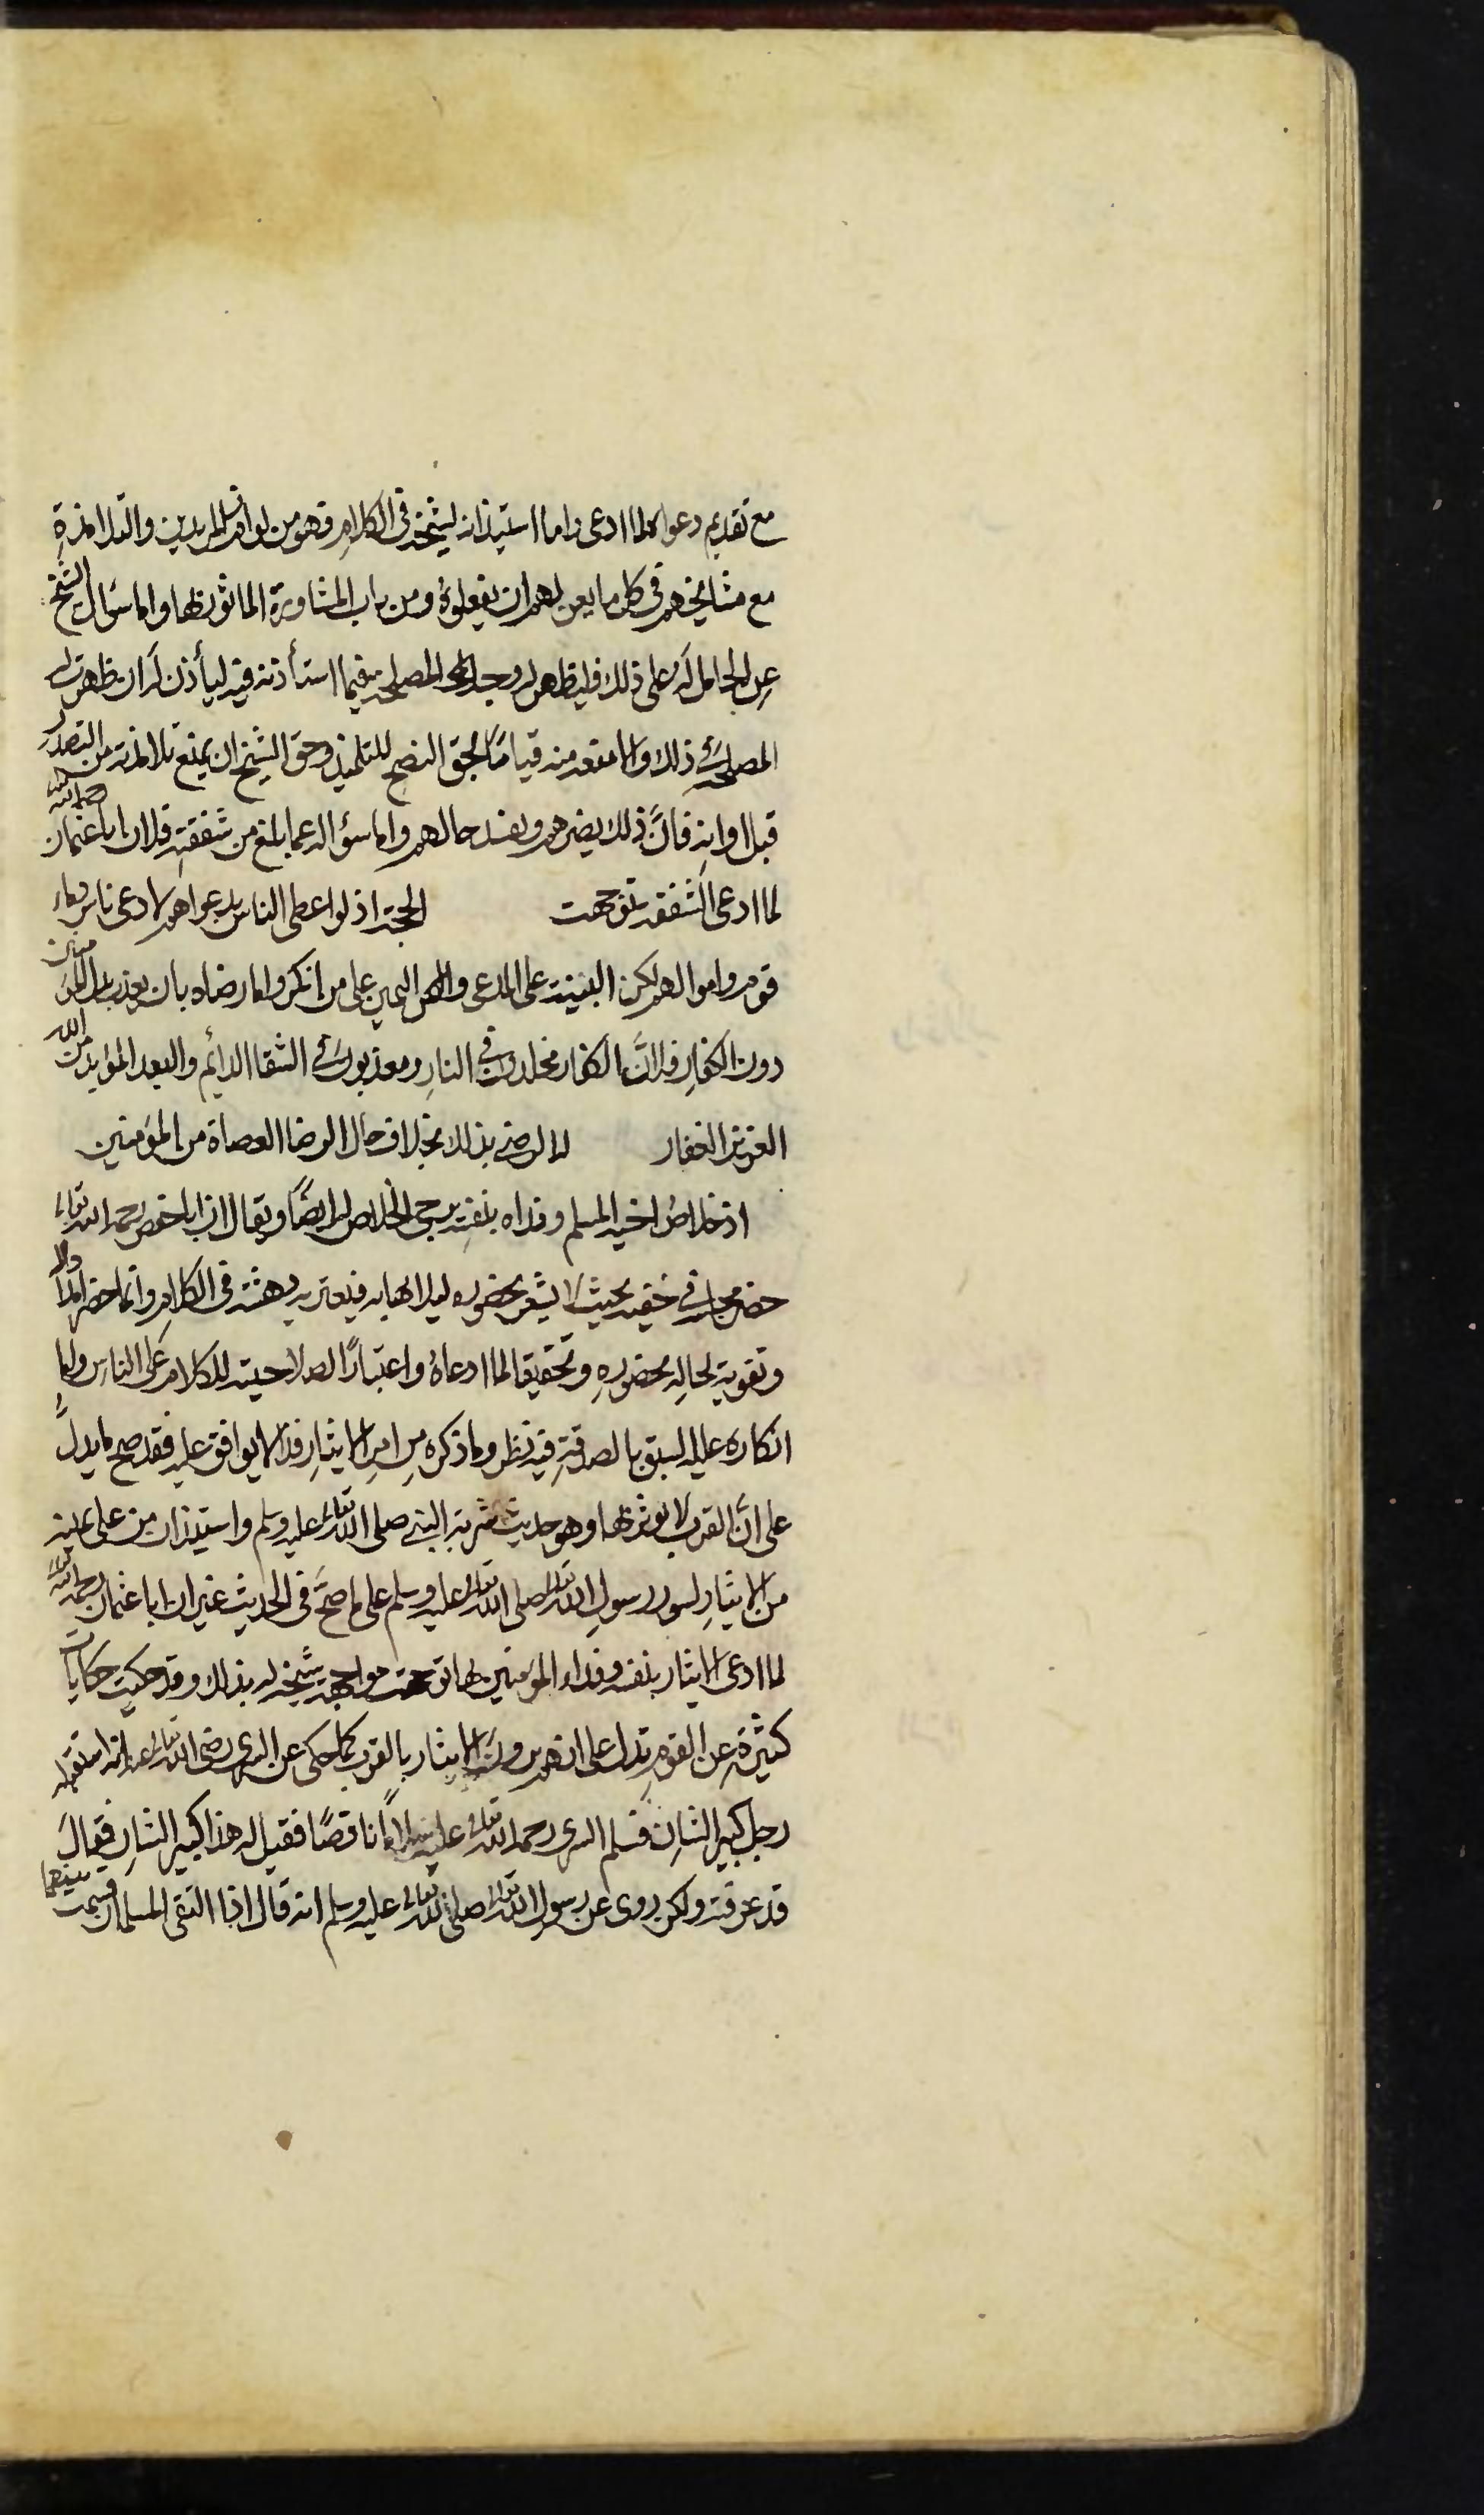 مع تقديم دعواه لما ادعى واما استيذانه لشيخه في الكلام فهو من لوازم المريدين والتلامذة
مع مشايخهم في كل ما يعن لهم ان يفعلوه ومن باب المشاورة المامور بها واما سؤال الشيخ
عن الحامل له على ذلك فليظهر له وجه المصلحة فيما استأذنه فيه ليأذن له ان ظهرت له
المصلحة في ذلك والا منعه منه قياما بحق النصح للتلميذ وحق الشيخ ان يمنع تلامذته من التصدر
قبل اوانه فان ذلك يضرهم ويفسد حالهم واما سؤاله عما بلغ من شفقته فلان ابا عثمان رحمه الله
لما ادعى الشفقة توجهت الحجة اذ لو اعطى الناس بدعواهم لادعى ناس دماء
قوم واموالهم لكن البينة على المدعى واليمين على من انكر واما رضاه بان يعذب بدل المؤمنين
دون الكفار فلان الكفار مخلدون في النار ومعذبون في الشقا الدائم والبعد المؤبد من الله
العزيز الغفار لا لرضى بذلك بخلاف حال الرضا العصاة من المؤمنين
اذ خلاص اخيه المسلم وفداه بنفسه يرجى الخلاص له ايضا ويقال ان ابا حفص رحمه الله تعالى
حضر مجلسه في خفية بحيث لا يشعر بحضوره ليلا يهابه فيعتريه دهشة في الكلام وانما حضر امدادا
وتقوية لحاله بحضوره وتحقيقا لما ادعاه واعتبارا لصلاحيته للكلام على الناس واما
انكاره عليه السبق بالصدقة فيه نظر وما ذكره من امر الايثار فذا لا يوافق عليه فقد صح ما يدل
على ان القرب لا يوثر بها وهو حديث شربة النبي صلى الله تعالى عليه وسلم واستيذان من على يمينه
من الايثار لسور رسول الله تعالى صلى الله تعالى عليه وسلم على ما صح في الحديث غير ان ابا عثمان رحمه الله تعالى
لما ادعى الايثار بنفسه وفداء المؤمنين بها توجهت مواجهة شيخه له بذلك وقد حكيت حكايات
كثيرة عن القوم تدل على انهم يرون الايثار بالقرب كما حكى عن السرى رضى الله تعالى عنه انه استقبله
رجل كبير الشان فسلم السرى رحمه الله تعالى عليه سلاما ناقصا فقيل له هذا كبير الشان فقال
قد عرفته ولكن روى عن رسول الله تعالى صلى الله تعالى عليه وسلم انه قال اذا التقى المسلمان قسمت بينهما